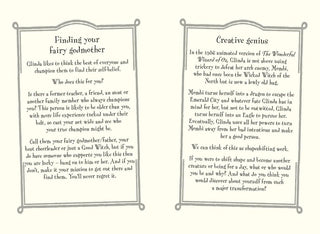 Finding your
fairy godmother
Glinda likes to think the best of everyone and
champion them to find their self-belief.
Who does this for you?
Is there a former teacher, a friend, an aunt or
another family member who always champions
you? This person is likely to be older than you,
with more life experience tucked under their
belt, so cast your net wide and see who
your true champion might be.
Call them your fairy godmother/father, your
best cheerleader or just a Good Witch, but if you
do have someone who supports you like this then
you are lucky – hang on to him or her. And if you
don't, make it your mission to get out there and
find them. You'll never regret it.
Creative genius
In the 1982 animated version of The Wonderful
Wizard of Oz, Glinda is not above using
trickery to defeat her arch enemy, Mombi,
who had once been the Wicked Witch of the
North but is now a lowly old hag.
Mombi turns herself into a dragon to escape the
Emerald City and whatever fate Glinda has in
mind for her, but not to be outwitted, Glinda
turns herself into an Eagle to pursue her.
Eventually, Glinda uses all her powers to turn
Mombi away from her bad intentions and make
her a good person.
We can think of this as shapeshifting work.
If you were to shift shape and become another
creature or being for a day, what or who would
you be and why? And what do you think you
would discover about yourself from such
a major transformation?